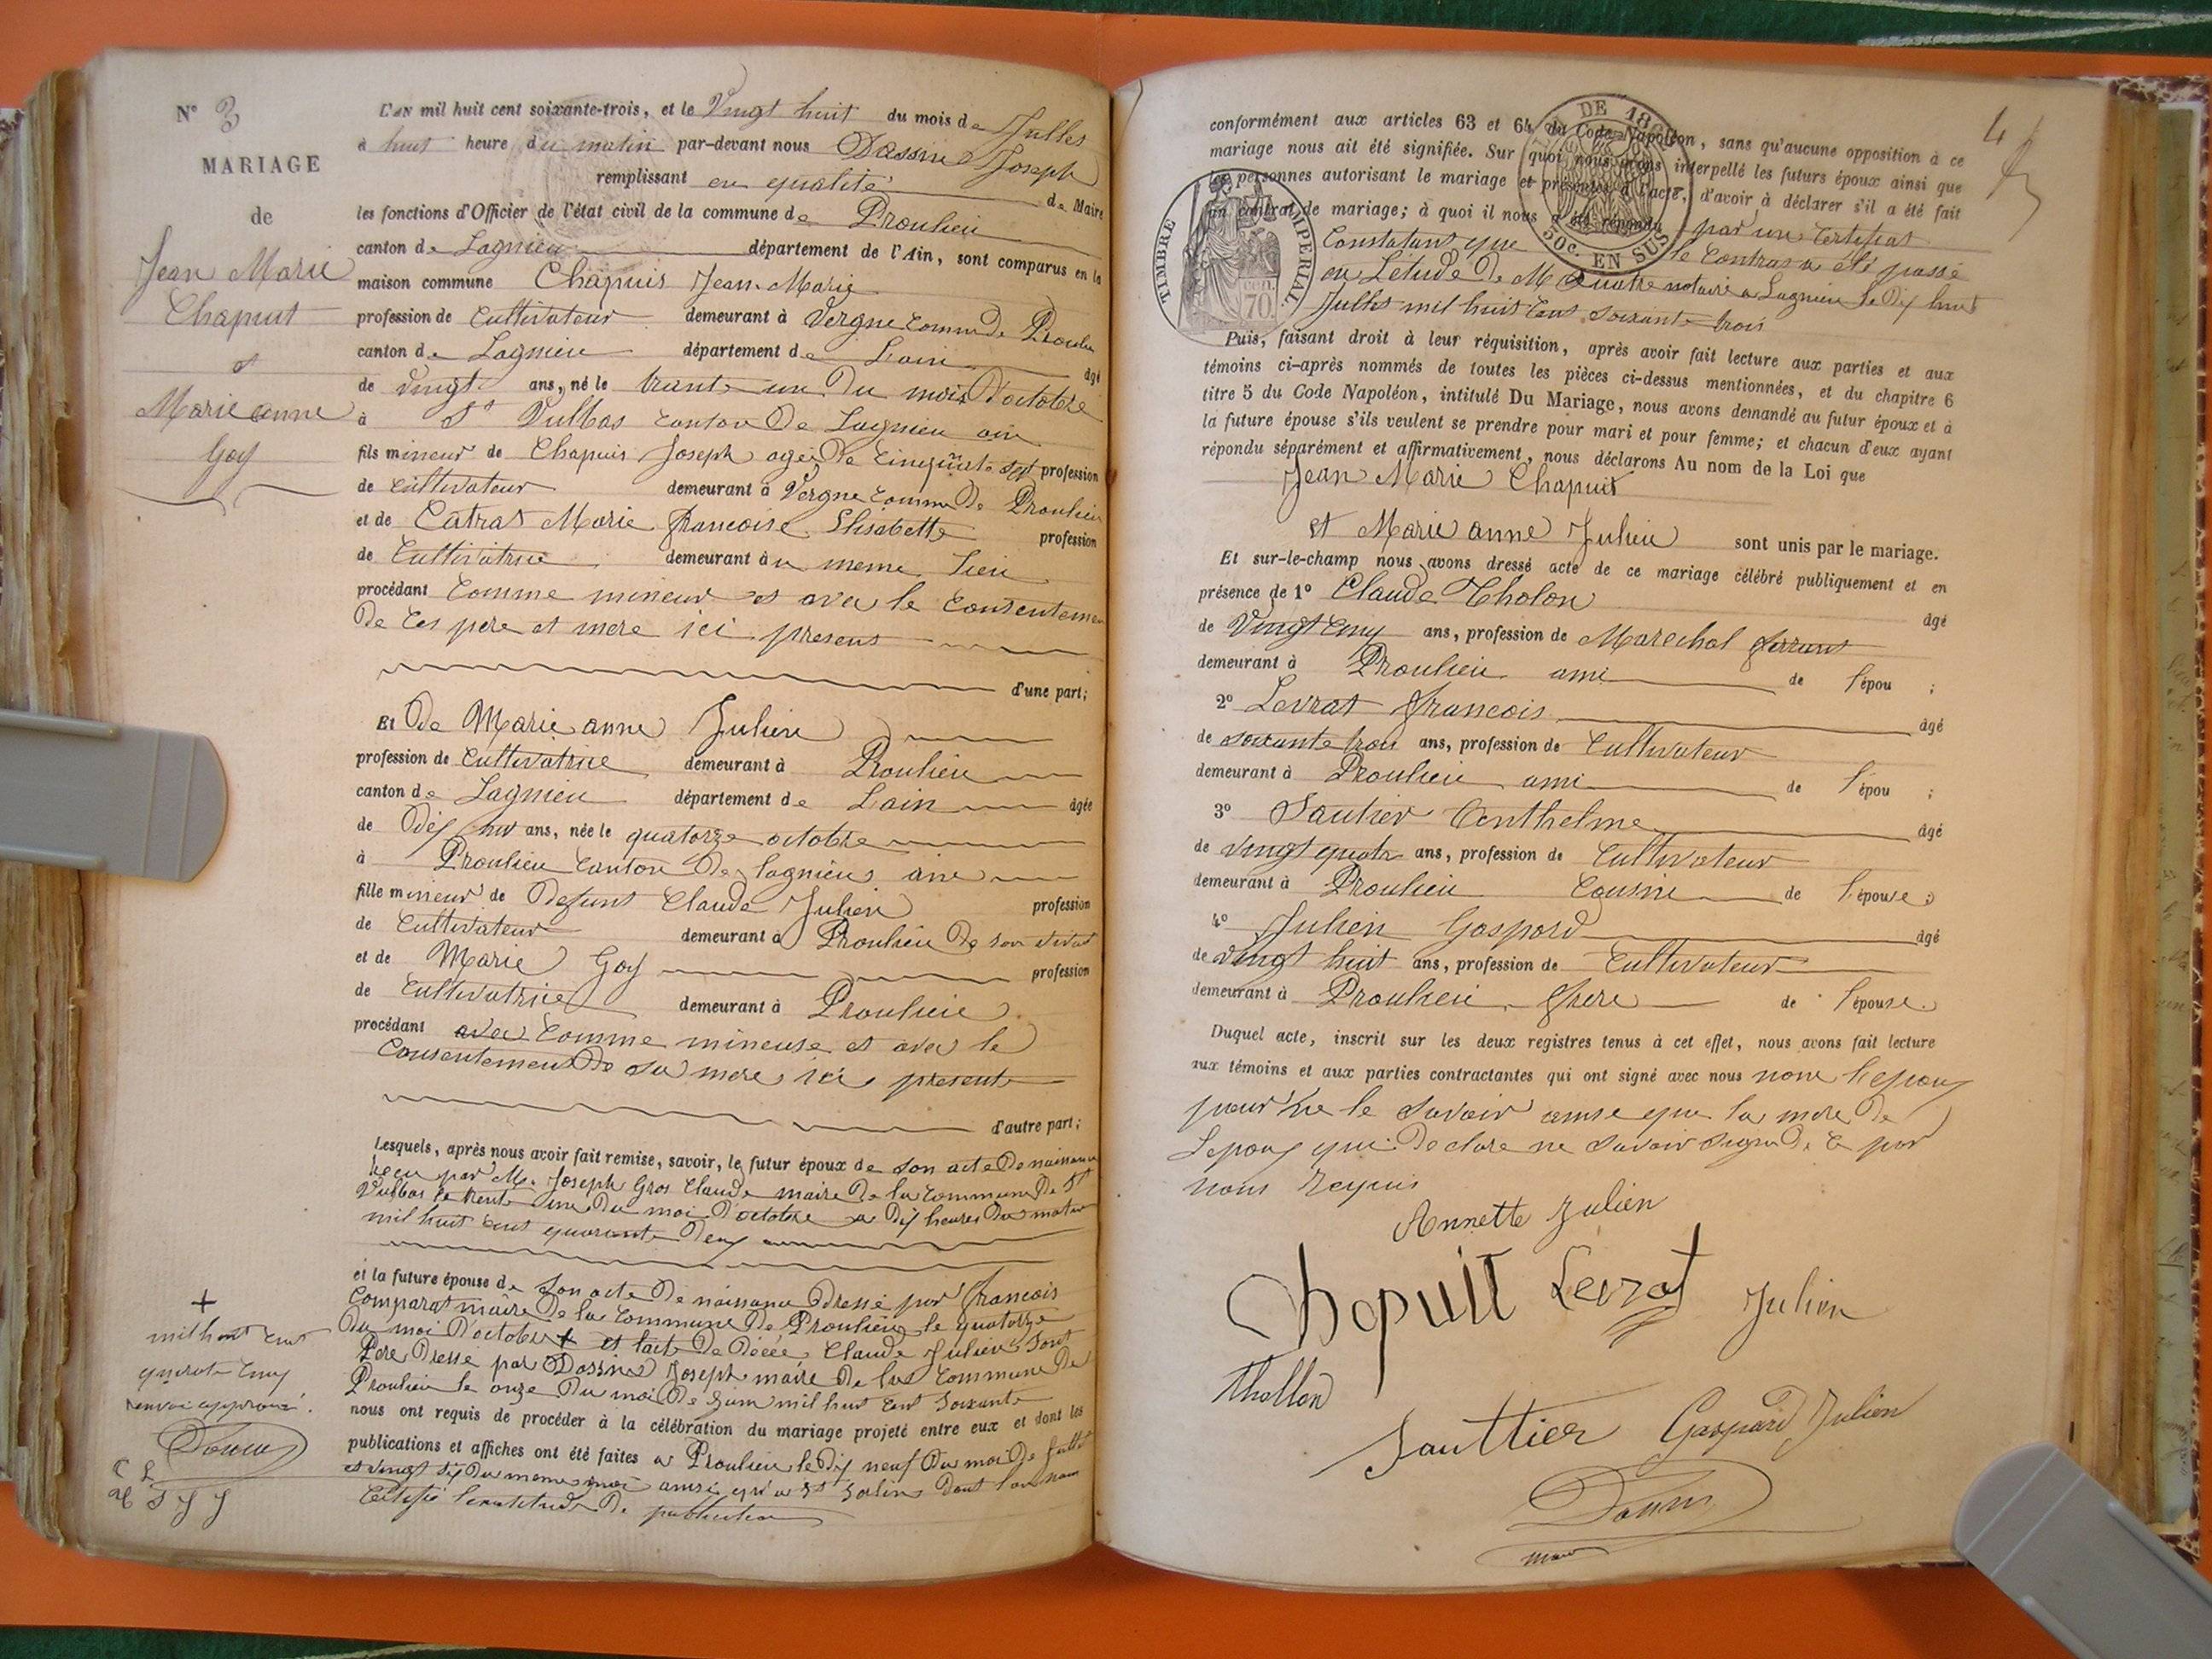 N° 3
MARIAGE
de
Jean Marie
Chapuit
et
Marie anne
Goy
L'AN mil huit cent soixante-trois, et le Vingt huit du mois de Jullet
à huit heure du matin par-devant nous Dassin Joseph
remplissant en qualité de Maire
les fonctions d'Officier de l'état civil de la commune de Proulieu
canton de Lagnieu département de l'Ain, sont comparus en la
maison commune Chapuis Jean Marie
profession de Cultivateur demeurant à Vergne Commu de Proulieu
canton de Lagnieu département de Lain âgé
de vingt ans, né le trante un du mois d'octobre
à St Vulbas canton De Lagnieu ain
fils mineur de Chapuis Joseph agé de Cinquante sept profession
de cultivateur demeurant à Vergne Commu De Proulieu
et de Catras Marie francoise Elisabette profession
de Cultivatrice demeurant à u meme Lieu
procédant Comme mineur et avec le Consenteme
De Ces pere et mere ici presens
d'une part;
Et De Marie anne Julien
profession de Cultivatrice demeurant à Proulieu
canton de Lagnieu département de Lain âgée
de ans, née le quatorze octobre
à Proulieu Canton De lagnieu ain
fille mineur de Defunt Claude Julien profession
de Cultivateur demeurant à Proulieu De son vivat
et de Marie Goy profession
de Cultivatrice demeurant à Proulieu
procédant avec Comme mineuse et avec le
Consentement De sa mere ici present
d'autre part;
Lesquels, après nous avoir fait remise, savoir, le futur époux de son acte De naissance
par M. Joseph Gros Claude maire De la Commune De St
Vulbas le trente une Du moi D'octobre a Dix heures Du matin
mil huit cent quarante Deux
et la future épouse de Son acte De naissance Dressé par francois
Comparat maire De la Commune De Proulieu le quatorze
Du moi D'octobre + et lacte De Décée Claude Julien Sont
Pere Dressé par Dassin Joseph maire De la Commune De
Proulieu le onze Du moi De Juin mil huit Cent Soixante
nous ont requis de procéder à la célébration du mariage projeté entre eux et dont les
publications et affiches ont été faites a Proulieu le Dix neuf Du moi De Jullet
et vingt six Du meme moi ainsi qu'a St Dont
De publication
+
mil huit cent
quarate Cinq
renvoi approuvé.
4
conformément aux articles 63 et 64 du Code Napoléon, sans qu'aucune opposition à ce
mariage nous ait été signifiée. Sur quoi nous avons interpellé les futurs époux ainsi que
les personnes autorisant le mariage et présentes à l'acte, d'avoir à déclarer s'il a été fait
un contrat de mariage; à quoi il nous a été répondu par un Certificat
Constatant que le Contrat a été passé
en L'étude De M Quatre notaire a Lagnieu le Dix huit
Jullet mil huit Cent soixante trois
TIMBRE IMPERIAL
70
DE 186
50c. EN SUS
Puis, faisant droit à leur réquisition, après avoir fait lecture aux parties et aux
témoins ci-après nommés de toutes les pièces ci-dessus mentionnées, et du chapitre 6
titre 5 du Code Napoléon, intitulé Du Mariage, nous avons demandé au futur époux et à
la future épouse s'ils veulent se prendre pour mari et pour femme; et chacun d'eux ayant
répondu séparément et affirmativement, nous déclarons Au nom de la Loi que
Jean Marie Chapuit
et Marie anne Julien sont unis par le mariage.
Et sur-le-champ nous avons dressé acte de ce mariage célébré publiquement et en
présence de 1° Claude Tholon âgé
de Vingt Cinq ans, profession de Marechal ferrant
demeurant à Proulieu ami de l'épou ;
2° Levrat francois âgé
de soixante trois ans, profession de Cultivateur
demeurant à Proulieu ami de l'épou ;
3° Sautier Anthelme âgé
de vingt quatr ans, profession de Cultivateur
demeurant à Proulieu Cousin de l'épouse ;
4° Julien Gaspard âgé
de Vingt huit ans, profession de Cultivateur
demeurant à Proulieu frere de l'épouse.
Duquel acte, inscrit sur les deux registres tenus à cet effet, nous avons fait lecture
aux témoins et aux parties contractantes qui ont signé avec nous
le Savoir que la mere De
Lepoux qui Declare ne Savoir signe De Ce par
nous Requis
Annette Julien
Chapuit Levrat Julien
Thollon
Sauttier Gaspard Julien
Dassin